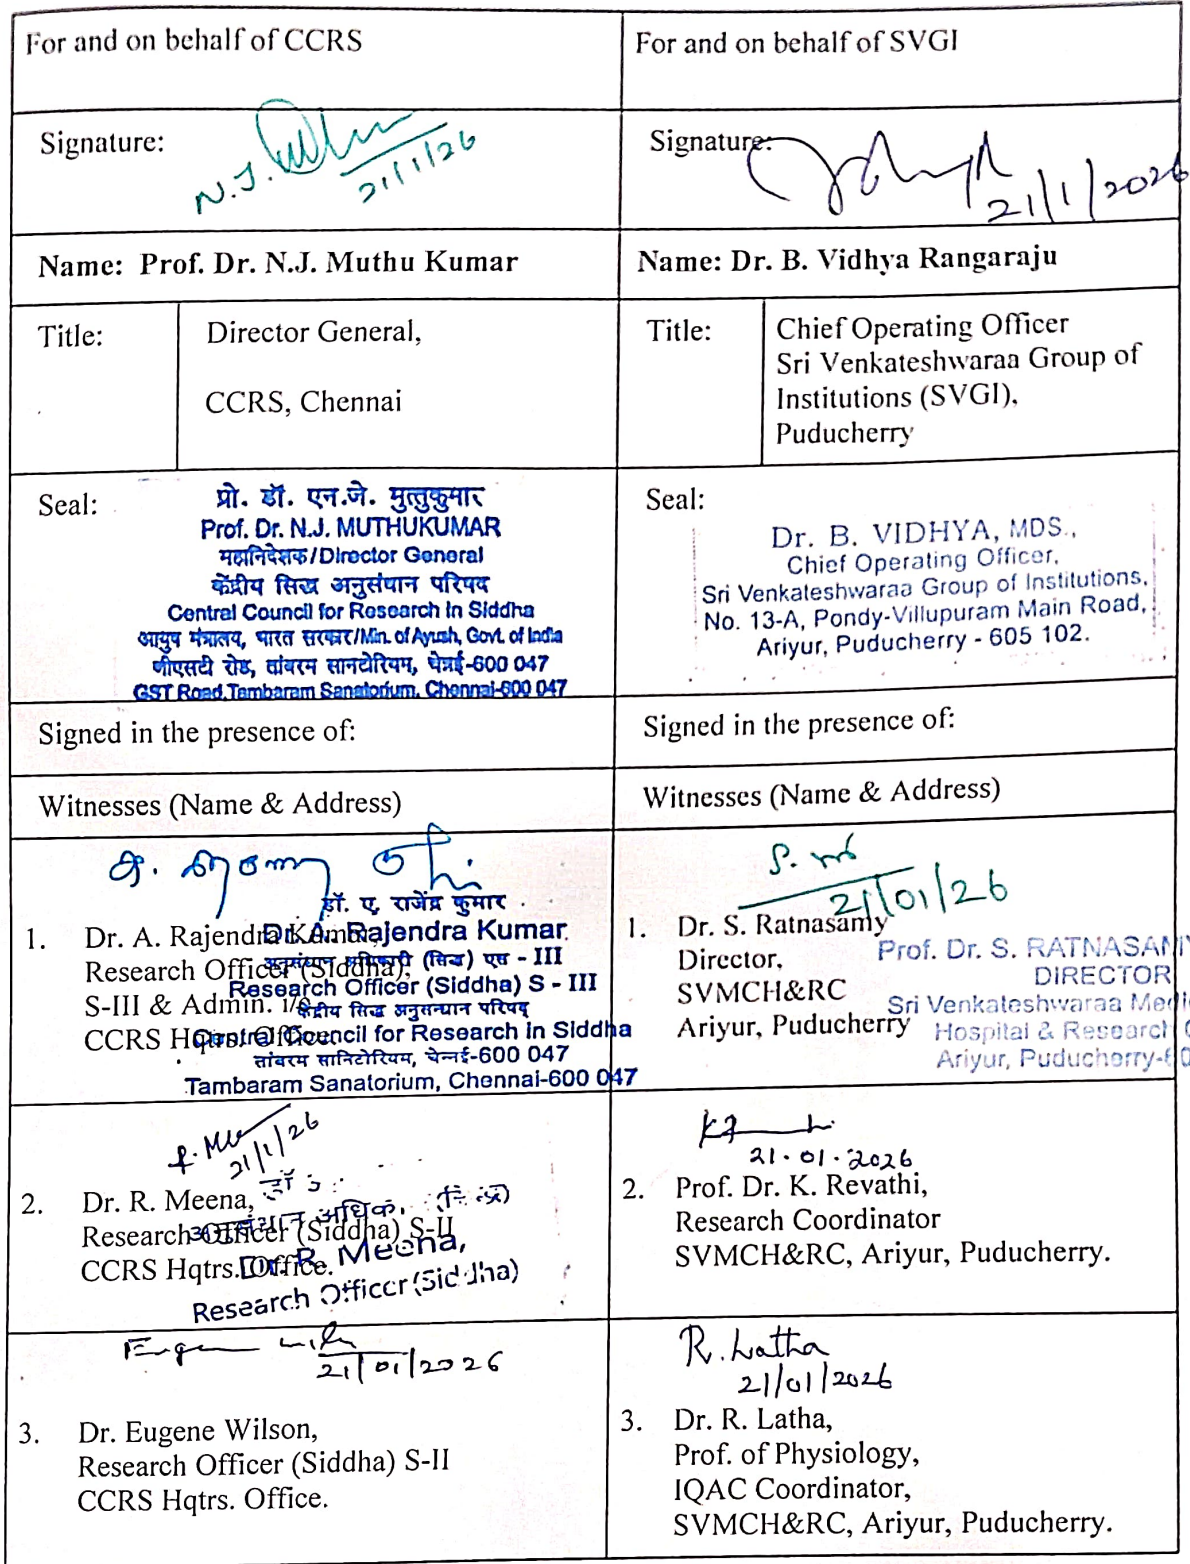 For and on behalf of CCRS
For and on behalf of SVGI
Signature:
N.J.
21/1/26
Signature:
21/1/2026
Name: Prof. Dr. N.J. Muthu Kumar
Name: Dr. B. Vidhya Rangaraju
Title:
Director General,
CCRS, Chennai
Title:
Chief Operating Officer
Sri Venkateshwaraa Group of
Institutions (SVGI),
Puducherry
Seal:
प्रो. डॉ. एन.जे. मुत्तुकुमार
Prof. Dr. N.J. MUTHUKUMAR
महानिदेशक/Director General
केंद्रीय सिद्ध अनुसंधान परिषद
Central Council for Research in Siddha
आयुष मंत्रालय, भारत सरकार/Min. of Ayush, Govt. of India
जीएसटी रोड, तांबरम सानटोरियम, चेन्नई-600 047
GST Road,Tambaram Sanatorium, Chennai-600 047
Seal:
Dr. B. VIDHYA, MDS.,
Chief Operating Officer,
Sri Venkateshwaraa Group of Institutions,
No. 13-A, Pondy-Villupuram Main Road,
Ariyur, Puducherry - 605 102.
Signed in the presence of:
Signed in the presence of:
Witnesses (Name & Address)
Witnesses (Name & Address)
1. Dr. A. Rajendra Kumar,
Research Officer (Siddha),
S-III & Admin. I/c
CCRS Hqtrs. Office.
डॉ. ए. राजेंद्र कुमार
Dr. A. Rajendra Kumar
अनुसंधान अधिकारी (सिद्ध) एस - III
Research Officer (Siddha) S - III
केंद्रीय सिद्ध अनुसन्धान परिषद्
Central Council for Research in Siddha
तांबरम सानिटोरियम, चेन्नई-600 047
Tambaram Sanatorium, Chennai-600 047
S.
21/01/26
1. Dr. S. Ratnasamy
Director,
SVMCH&RC
Ariyur, Puducherry
Prof. Dr. S. RATNASAMY
DIRECTOR
Sri Venkateshwaraa Medi
Hospital & Research C
Ariyur, Puducherry-60
21/1/26
2. Dr. R. Meena,
Research Officer (Siddha) S-II
CCRS Hqtrs. Office.
Dr. R. Meena,
Research Officer (Siddha)
21.01.2026
2. Prof. Dr. K. Revathi,
Research Coordinator
SVMCH&RC, Ariyur, Puducherry.
21/01/2026
3. Dr. Eugene Wilson,
Research Officer (Siddha) S-II
CCRS Hqtrs. Office.
R. Latha
21/01/2026
3. Dr. R. Latha,
Prof. of Physiology,
IQAC Coordinator,
SVMCH&RC, Ariyur, Puducherry.